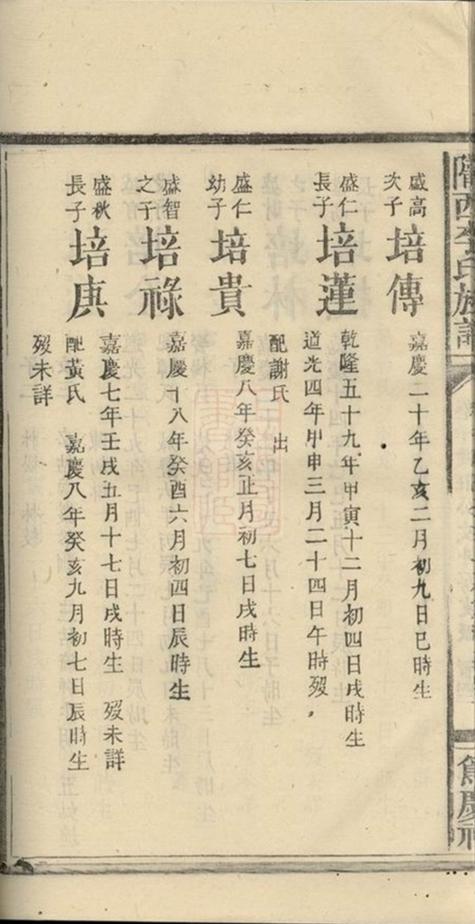 隴西李氏族譜
餘慶祠
盛高
次子
培傳
嘉慶二十年乙亥二月初九日巳時生
盛仁
長子
培蓮
乾隆五十九年甲寅十二月初四日戌時生
道光四年甲申三月二十四日午時歿
配謝氏　出
盛仁
幼子
培貴
嘉慶八年癸亥正月初七日戌時生
盛智
之子
培祿
嘉慶十八年癸酉六月初四日辰時生
盛秋
長子
培庚
嘉慶七年壬戌五月十七日戌時生　歿未詳
配黃氏　嘉慶八年癸亥九月初七日辰時生
歿未詳